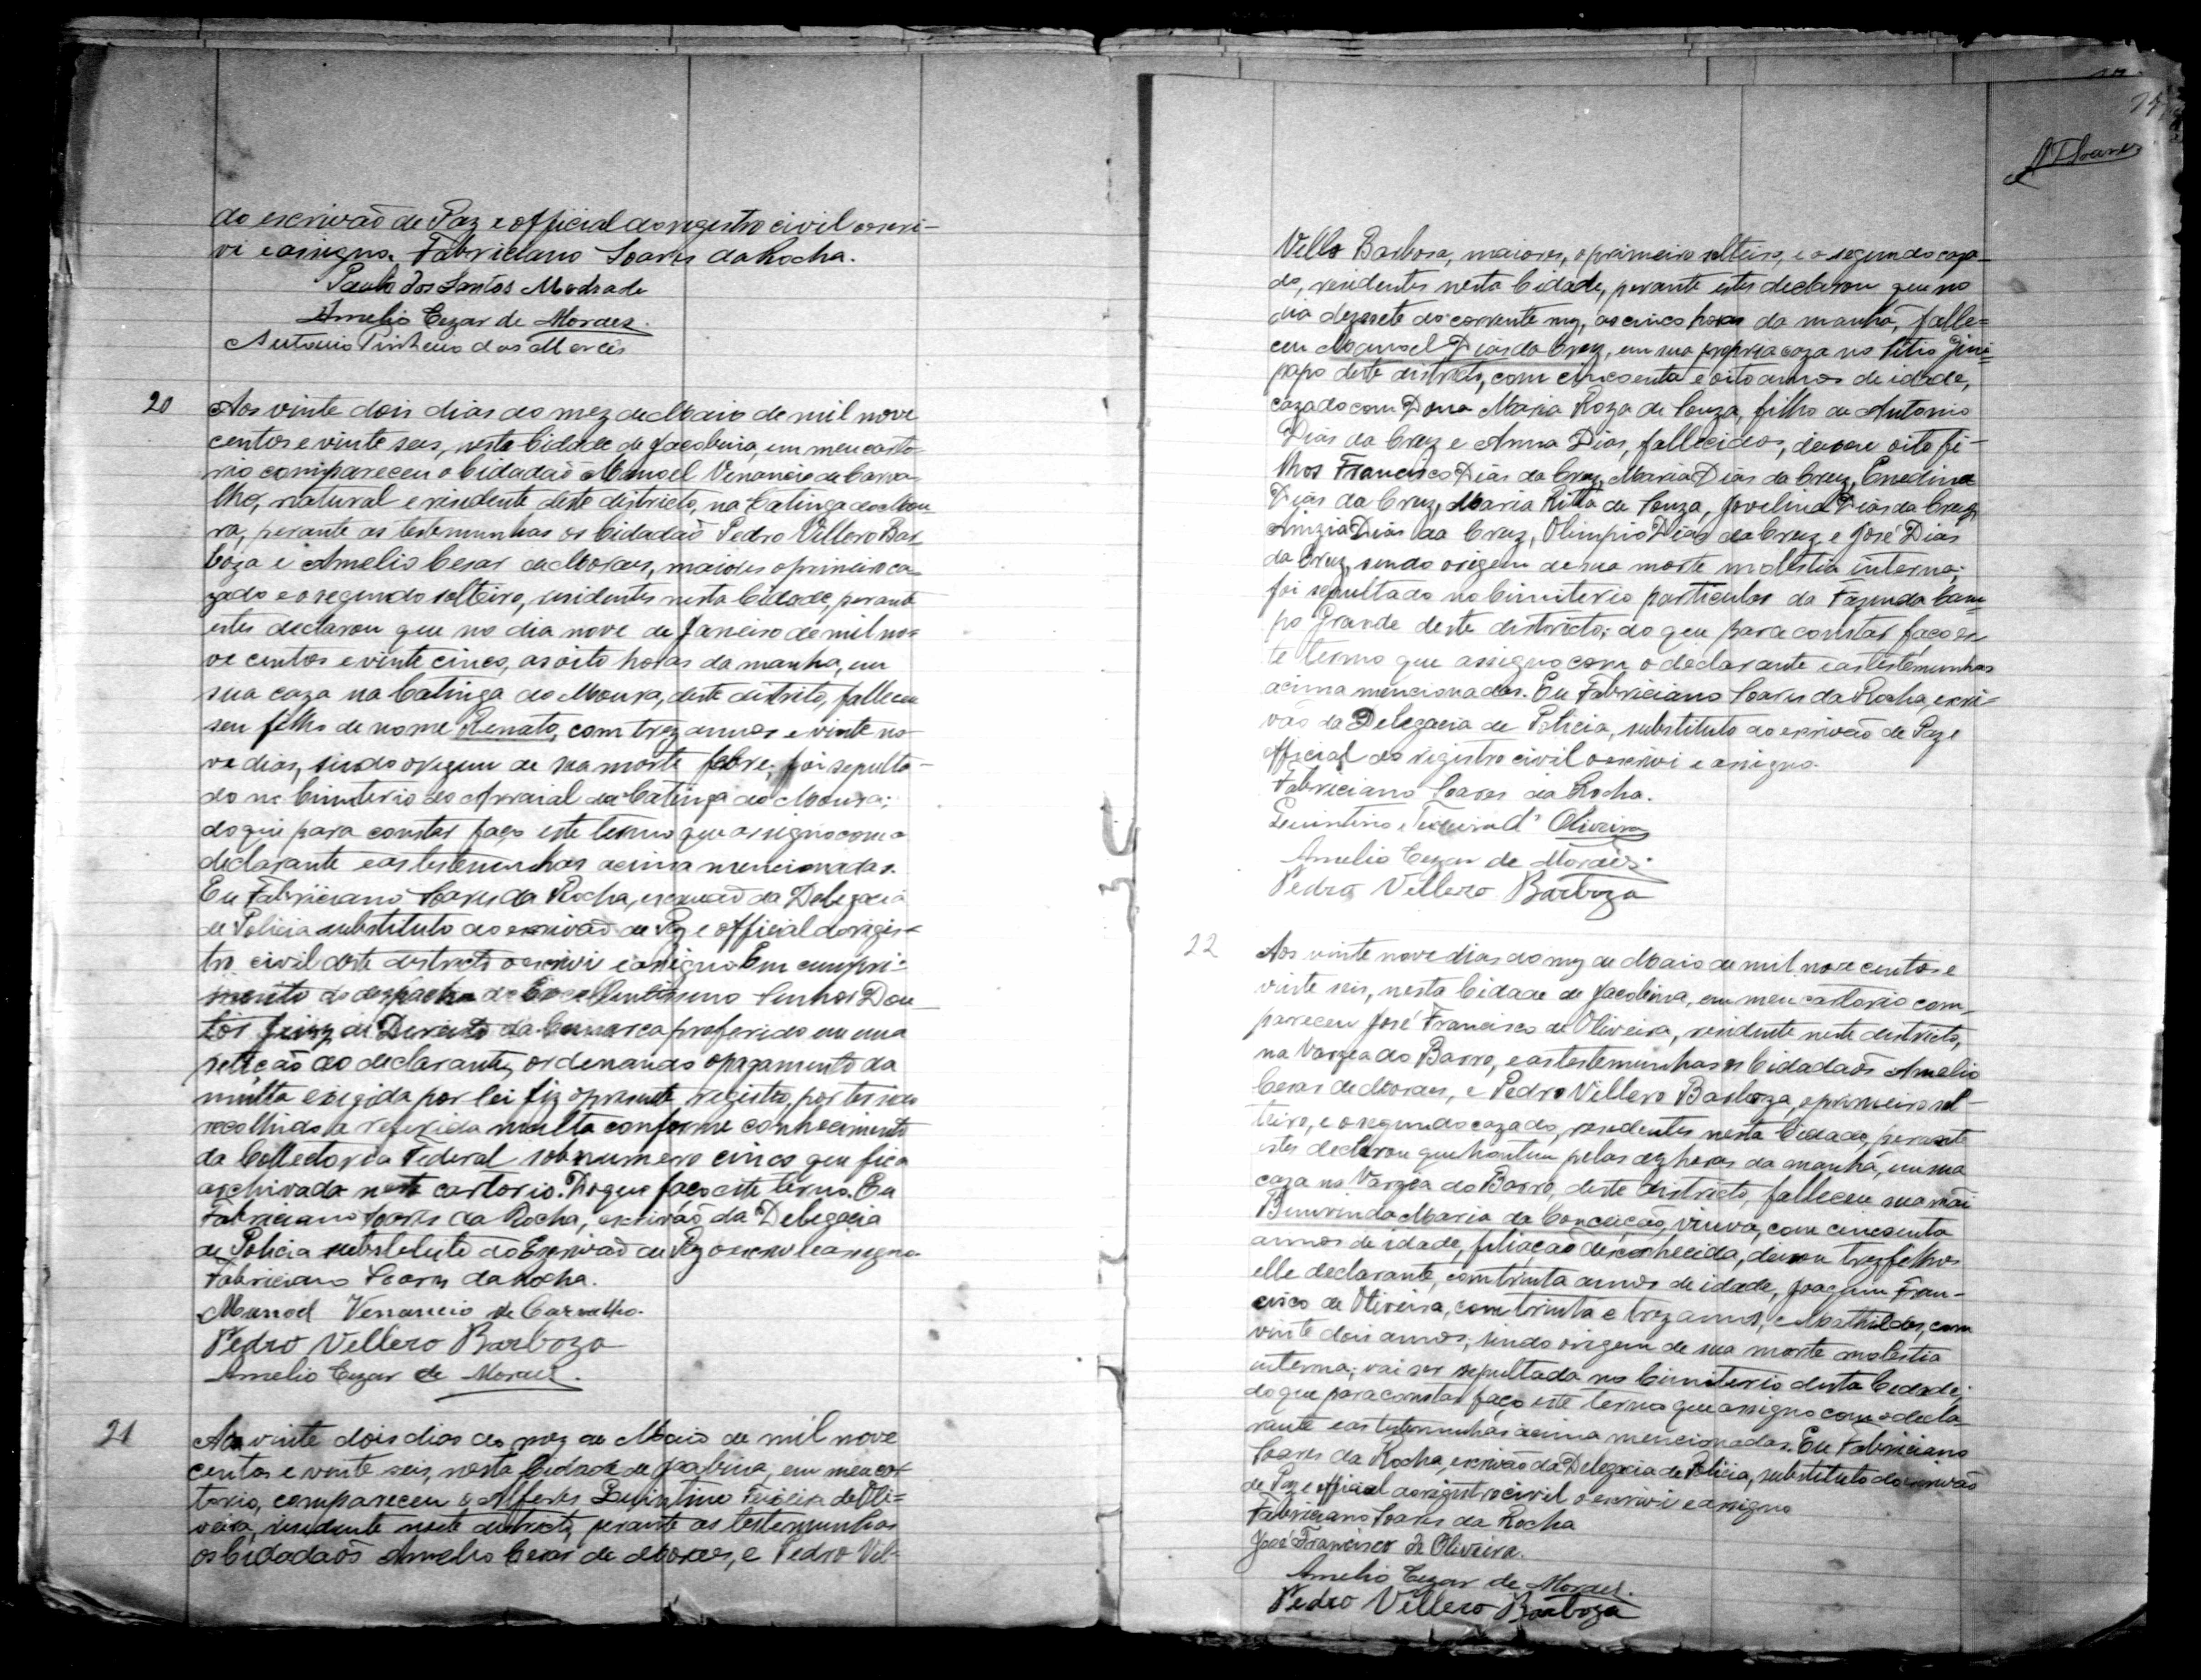 do escrivão de Paz e official do registro civil o escri-
vi e assigno. Fabriciano Soares da Rocha.
Paulo dos Santos Madrade
Amelio Cezar de Moraes.
Antonio Pinheiro das Mercês
20 Aos vinte dois dias do mez de Maio de mil nove
centos e vinte seis, nesta Cidade de Jacobina, em meu carto-
rio compareceu o Cidadão Manoel Venancio de Carva-
lho, natural e residente deste districto, na Catinga do Mou-
ra, perante as testemunhas os Cidadãos Pedro Vellero Bar-
boza e Amelio Cesar de Moraes, maiores o primeiro ca-
zado e o segundo solteiro, residentes nesta Cidade, perante
estes declarou que no dia nove de Janeiro de mil no-
ve centos e vinte cinco, as oito horas da manha, em
sua caza na Catinga do Moura, deste distrito, falleceu
seu filho de nome Renato, com trez annos e vinte no-
ve dias, sendo origem de sua morte febre; foi sepulta-
do no Cimiterio do Arraial da Catinga do Moura;
do que para constar faço este termo que assigno com o
declarante e as testemunhas acima mencionadas.
Eu Fabriciano Soares da Rocha, escrivão da Delegacia
de Policia substituto do escrivão de Paz e official do regis-
tro civil deste districto o escrivi e assigno Em cumpri-
mento do despacho do Excellentissimo Senhor Dou-
tor Juiz de Direito da Comarca proferido em uma
petição do declarante, ordenando o pagamento da
multa exigida por lei fiz o presente registro, por ter sido
recolhido a referida multa conforme conhecimento
da Collectoria Federal sob numero cinco que fica
archivada neste cartorio. Do que faço este termo. Eu
Fabriciano Soares da Rocha, escrivão da Delegacia
de Policia substituto do Escrivão de Paz o escrevi e assigno
Fabriciano Soares da Rocha.
Manoel Venancio de Carvalho.
Pedro Vellero Barboza
Amelio Cezar de Moraes.
21 Aos vinte dois dias do mez de Maio de mil nove
centos e vinte seis, nesta Cidade de Jacobina, em meu car-
torio, compareceu o Alferes Quintino Teixeira de Oli=
veira, residente neste districto, perante as testemunhas
os Cidadãos Amelio Cesar de Moraes, e Pedro Vel-
Vello Barbosa, maiores, o primeiro solteiro, e o segundo caza-
do, residentes nesta Cidade, perante estes declarou que no
dia dezesete do corrente mez, as cinco horas da manhã, falle=
ceu Manoel Dias da Cruz, em sua propria caza no Sitio Jini-
papo deste districto, com cincoenta e oito annos de idade,
cazado com Dona Maria Roza de Souza, filho de Antonio
Dias da Cruz e Anna Dias, fallecidos, deixou oito fi-
lhos Francisco Dias da Cruz, Maria Dias da Cruz, Enedina
Dias da Cruz, Maria Ritta de Souza, Jovelina Dias da Cruz,
Dias da Cruz, Olimpio Dias da Cruz e José Dias
da Cruz, sendo origem de sua morte molestia interna;
foi sepultado no Cimiterio particular da Fazenda Cam-
po Grande deste districto; do que para constar faço es-
te termo que assigno com o declarante e as testemunhas
acima mencionadas. Eu Fabriciano Soares da Rocha, escri-
vão da Delegacia de Policia, substituto do escrivão de Paz e
official do registro civil o escrivi e assigno.
Fabriciano Soares da Rocha.
Quintino Teixeira d' Oliveira
Amelio Cezar de Moraes.
Pedro Vellero Barboza
22 Aos vinte nove dias do mez de Maio de mil nove centos e
vinte seis, nesta Cidade de Jacobina, em meu cartorio com-
pareceu José Francisco de Oliveira, residente neste districto,
na Varzea do Barro, e as testemunhas os Cidadãos Amelio
Cesar de Moraes, e Pedro Vellero Barboza, o primeiro sol-
teiro, e o segundo cazado, residentes nesta Cidade, perante
estes declarou que hontem pelas dez horas da manhã, em sua
caza na Varzea do Barro, deste districto, falleceu sua mãi
Bemvinda Maria da Conceição, viuva, com cincoenta
annos de idade, filiação desconhecida, deixou trez filhos
elle declarante, com trinta annos de idade, Joaquim Fran-
cisco de Oliveira, com trinta e trez annos, e Mathildes, com
vinte dois annos; sendo origem de sua morte molestia
interna; vai ser sepultada no Cimiterio desta Cidade;
do que para constar faço este termo que assigno com o decla-
rante e as testemunhas acima mencionadas. Eu Fabriciano
Soares da Rocha, escrivão da Delegacia de Policia, substituto do escrivão
de Paz e official do registro civil o escrivi e assigno
Fabriciano Soares da Rocha
José Francisco de Oliveira.
Amelio Cezar de Moraes.
Pedro Vellero Barboza